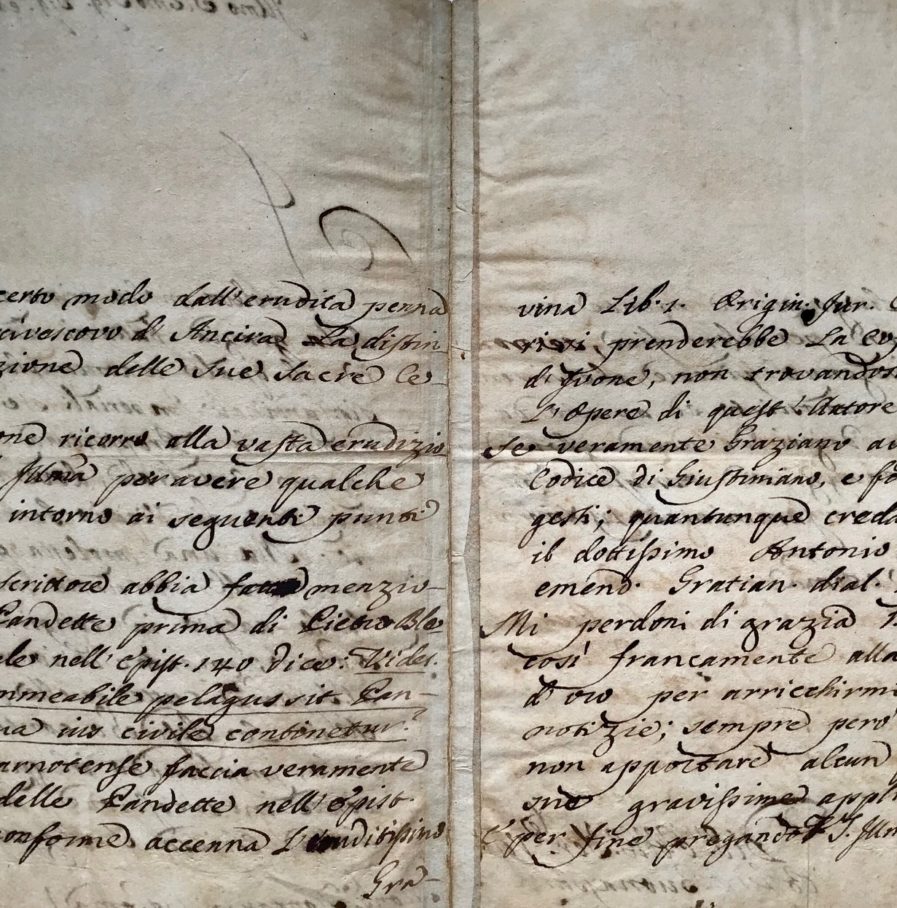 certo modo dall'erudita penna
civescovo d'Ancira La distin
zione delle sue sacre Ce-
one ricorro alla vasta erudizio
Illma per avere qualche
intorno ai seguenti punti
scrittore abbia fatto menzio-
Pandette prima di Pietro Ble
ale nell'Epist. 140 dice: Vides.
mmeabile pelagus sit Pan-
na ius civile continetur?
arnotense faccia veramente
delle Pandette nell'Epist.
conforme accenna L'eruditissimo
Gra-
vina Lib. 1. Origin. Jur.
prenderebbe La
d'Ivone, non trovandos
L'Opere di quest'Autore
Se veramente Graziano
Codice di Giustiniano, e
gesti; quantunque creda
il dottissimo Antonio
emend. Gratian. dial.
Mi perdoni di grazia
così francamente alla
d'oro per arricchirmi
notizie; sempre però
non apportare alcun
sue gravissime
E per fine pregando